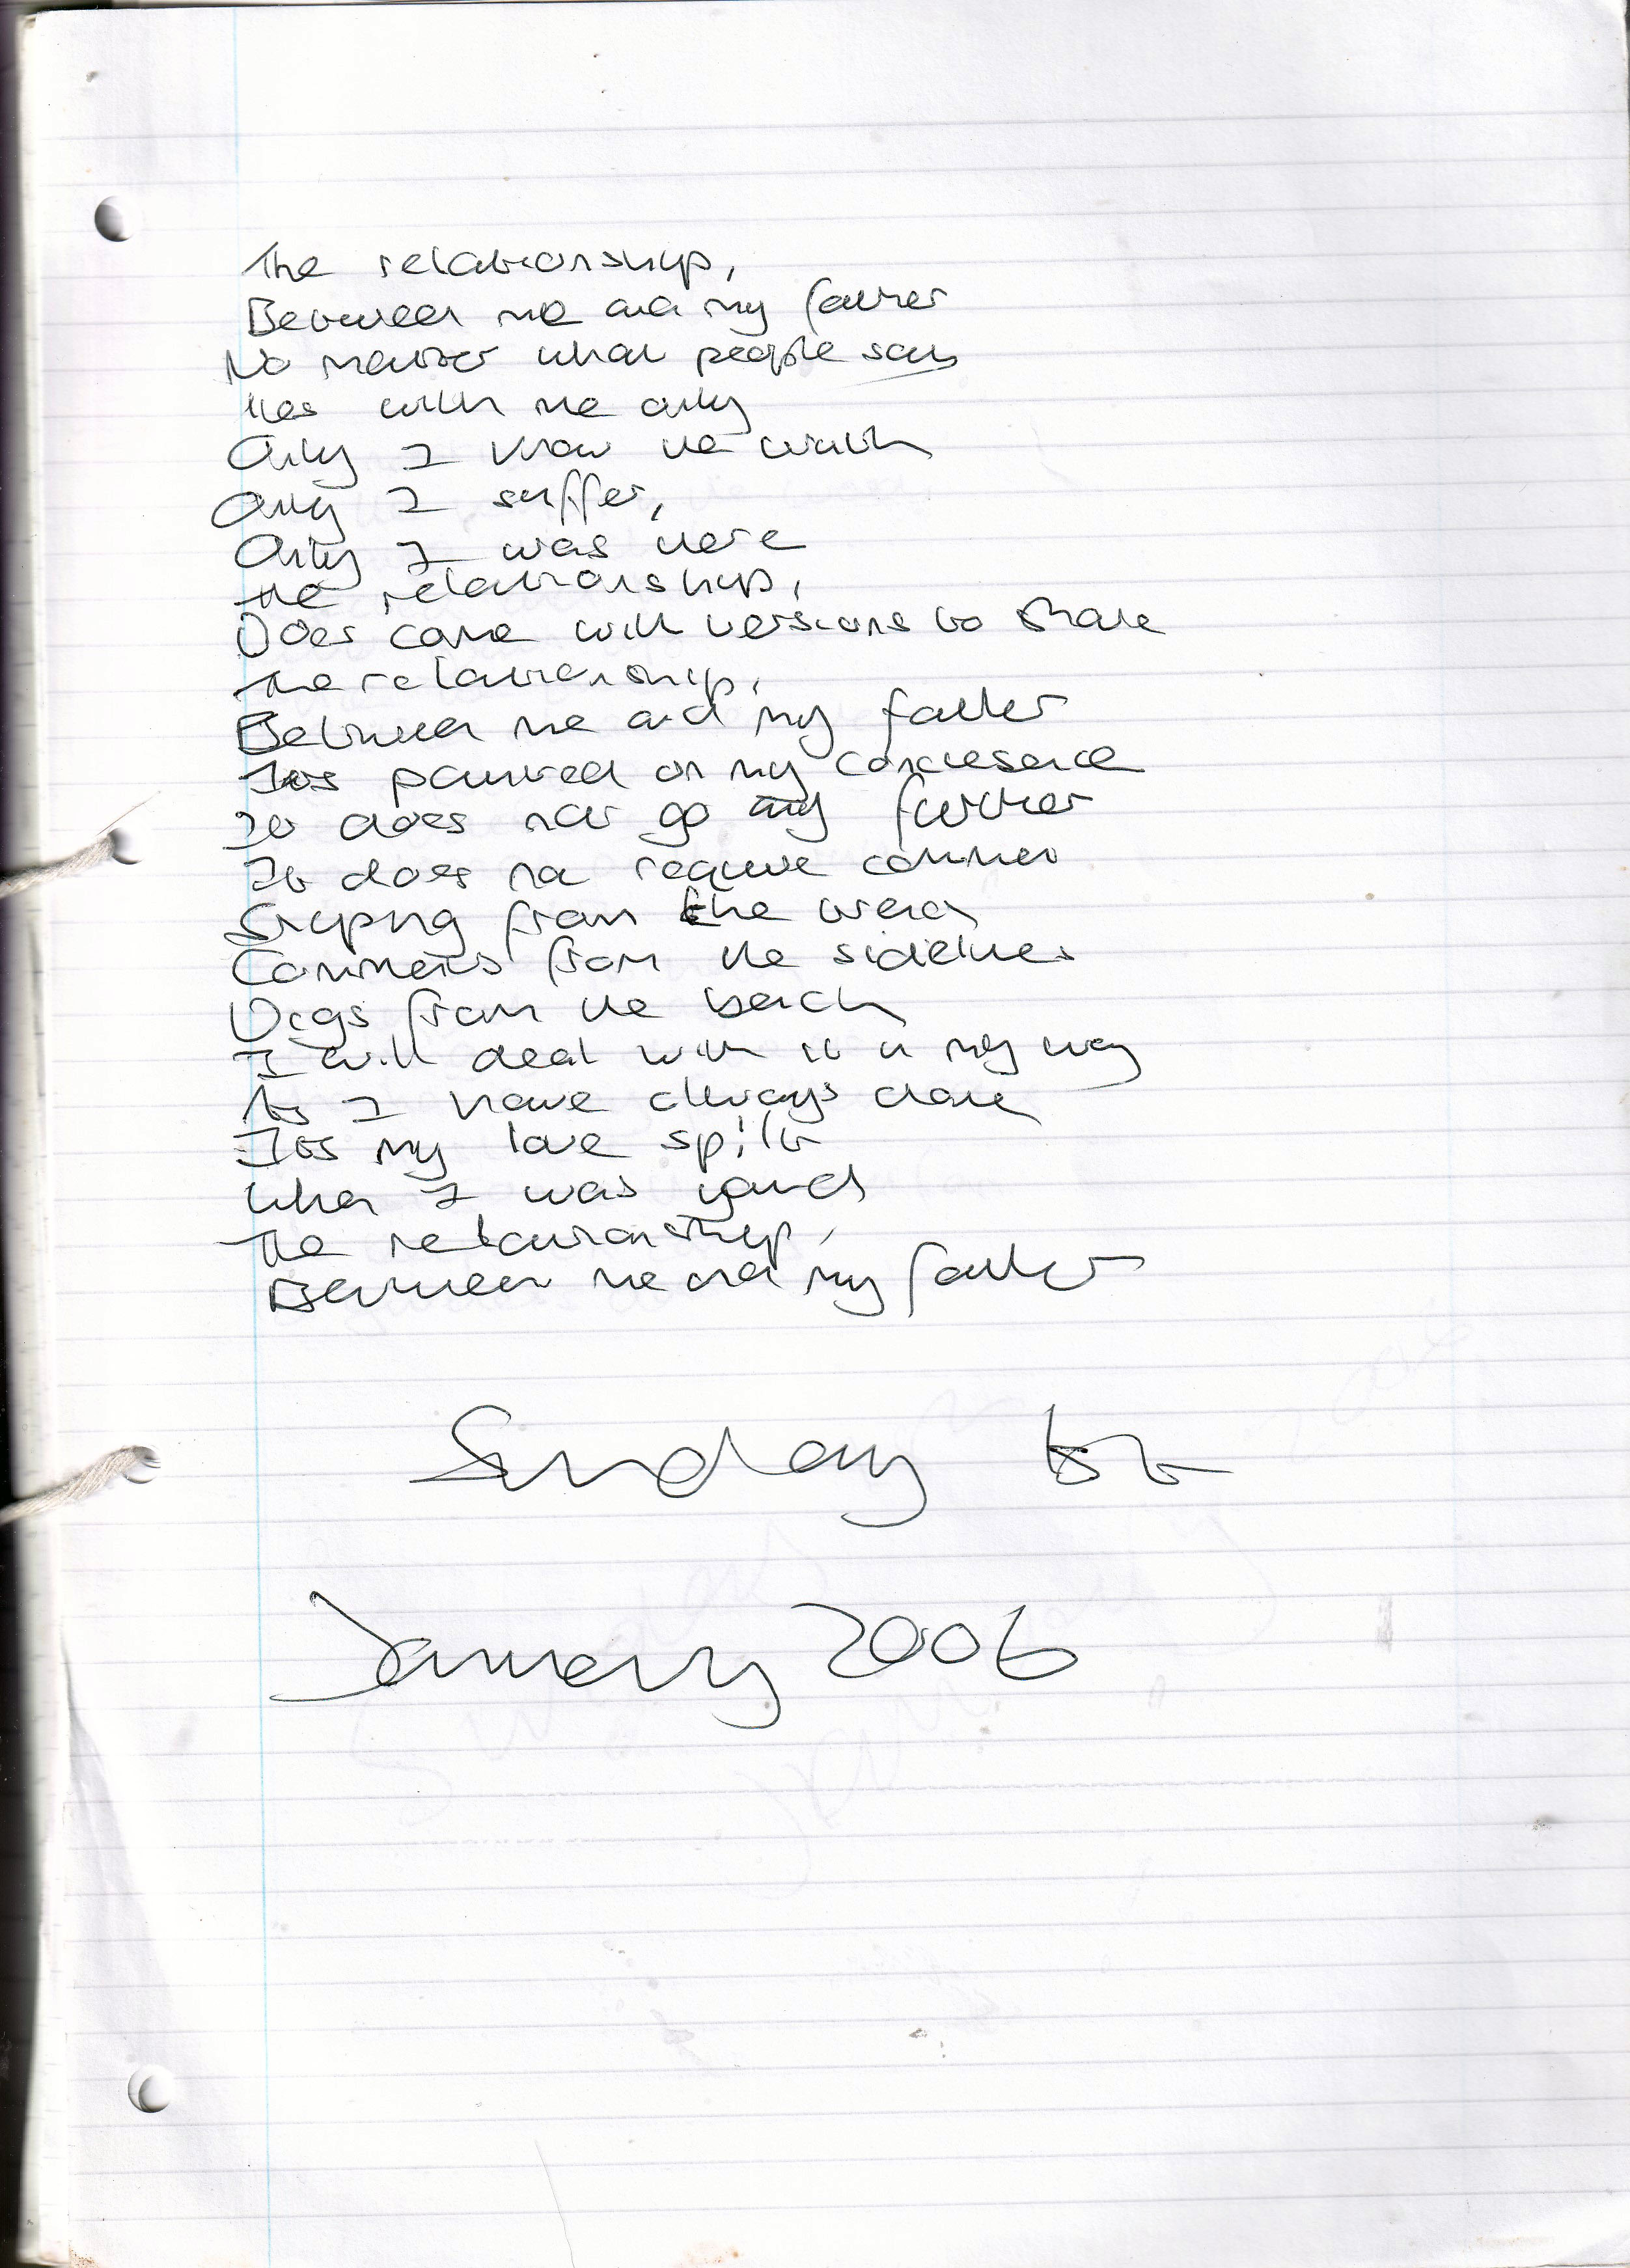 The relationship,
Between me and my father
No matter what people say
lies with me only
Only I know the truth
Only I suffer,
Only I was there
the relationship,
Does come with versions to share
the relationship,
Between me and my father
Its painted on my
It does not go any further
It does not require comment
Sniping from the trench
Comments from the sidelines
Digs from the bench
I will deal with it in my way
As I have always done
Its my love spilt
When I was young
the relationship,
Between me and my father
Sunday
January 2006